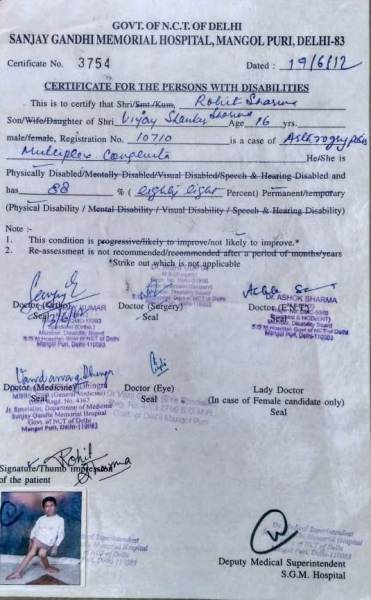 GOVT. OF N.C.T. OF DELHI
SANJAY GANDHI MEMORIAL HOSPITAL, MANGOL PURI, DELHI-83
Certificate No. 3754 Dated : 19/6/12
CERTIFICATE FOR THE PERSONS WITH DISABILITIES
This is to certify that Shri/Smt./Kum. Rohit Sharma
Son/Wife/Daughter of Shri Vijay Shanker Sharma Age 16 yrs.
male/female, Registration No. 10710 is a case of
Multiplex He/She is
Physically Disabled/Mentally Disabled/Visual Disabled/Speech & Hearing Disabled and
has 88 % ( eighty eight Percent) Permanent/temporary
(Physical Disability / Mental Disability / Visual Disability / Speech & Hearing Disability)
Note :-
1. This condition is progressive/likely to improve/not likely to improve.*
2. Re-assessment is not recommended/recommended after a period of months/years
*Strike out which is not applicable
Doctor (Ortho) Doctor (Surgery) Doctor (E.N.T.)
Seal Seal Seal
Dr. ASHOK SHARMA
Doctor (Medicine) Doctor (Eye) Lady Doctor
Seal Seal (In case of Female candidate only)
Seal
Jr. Specialist, Department of Medicine
Sanjay Gandhi Memorial Hospital
Govt. of NCT of Delhi
Mangol Puri, Delhi-110083
Rohit Sharma
Signature/Thumb impression
of the patient
Deputy Medical Superintendent
S.G.M. Hospital